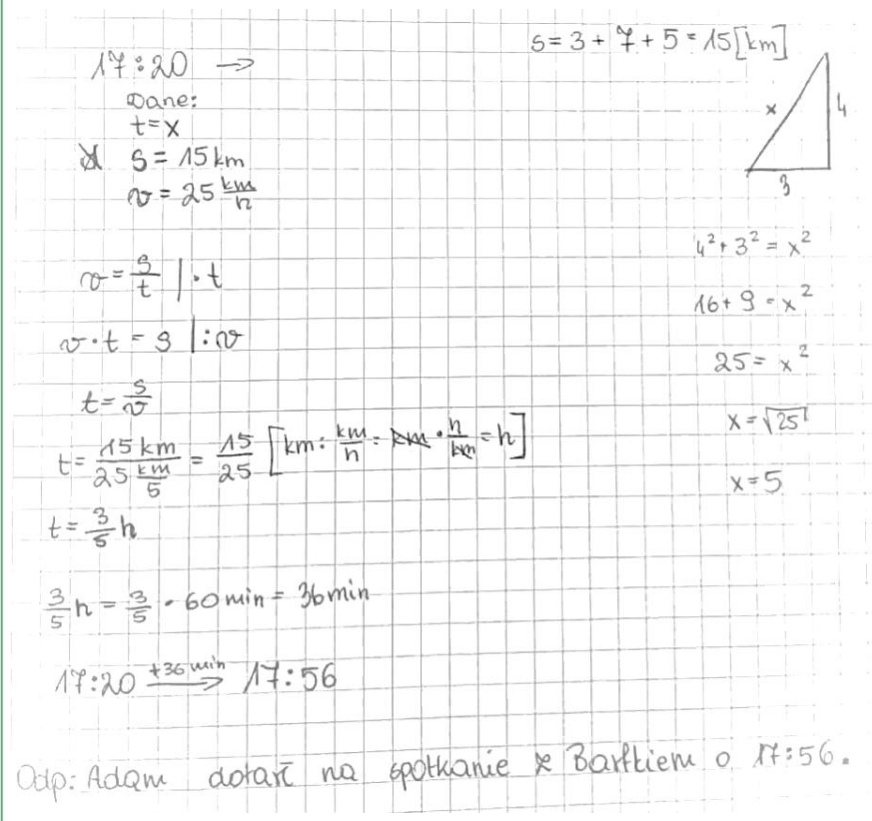 17:20 →
Dane:
t=x
s = 15 km
v = 25 km/h
v = s/t |·t
v·t = s |:v
t = s/v
t = 15 km / 25 km/5 = 15/25 [km : km/h = km · h/km = h]
t = 3/5 h
3/5 h = 3/5 · 60 min = 36 min
17:20 +36 min → 17:56
s = 3 + 7 + 5 = 15 [km]
x
4
3
4² + 3² = x²
16 + 9 = x²
25 = x²
x = √25
x = 5
Odp: Adam dotarł na spotkanie z Bartkiem o 17:56.